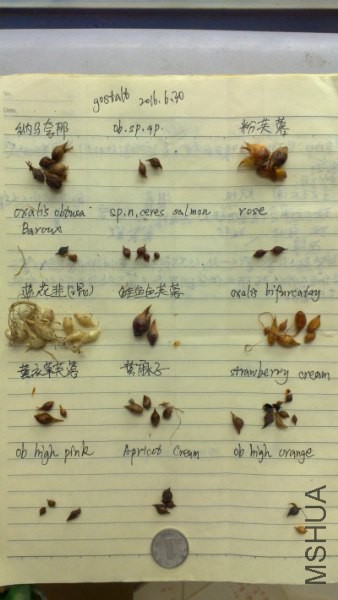 gostalt 2016.6.30
纳马夸那 ob.sp.ap. 粉芙蓉
oxalis obtusa sp.n.ceres salmon rose
Barows
芙蓉 oxalis bifurcatay
薰衣草芙蓉 strawberry cream
ob high pink Apricot Cream ob high orange
MSHUA